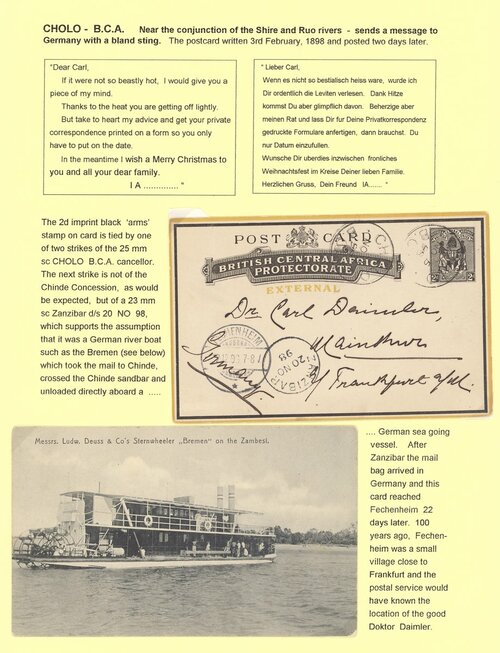 CHOLO - B.C.A. Near the conjunction of the Shire and Ruo rivers - sends a message to
Germany with a bland sting. The postcard written 3rd February, 1898 and posted two days later.
"Dear Carl,
If it were not so beastly hot, I would give you a
piece of my mind.
Thanks to the heat you are getting off lightly.
But take to heart my advice and get your private
correspondence printed on a form so you only
have to put on the date.
In the meantime I wish a Merry Christmas to
you and all your dear family.
I A .............. "
" Lieber Carl,
Wenn es nicht so bestialisch heiss ware, wurde ich
Dir ordentlich die Leviten verlesen. Dank Hitze
kommst Du aber glimpflich davon. Beherzige aber
meinen Rat und lass Dir fur Deine Privatkorrespondenz
gedruckte Formulare anfertigen, dann brauchst. Du
nur Datum einzufullen.
Wunsche Dir uberdies inzwischen fronliches
Weihnachtsfest im Kreise Deiner lieben Familie.
Herzlichen Gruss, Dein Freund IA....... "
The 2d imprint black 'arms'
stamp on card is tied by one
of two strikes of the 25 mm
sc CHOLO B.C.A. cancellor.
The next strike is not of the
Chinde Concession, as would
be expected, but of a 23 mm
sc Zanzibar d/s 20 NO 98,
which supports the assumption
that it was a German river boat
such as the Bremen (see below)
which took the mail to Chinde,
crossed the Chinde sandbar and
unloaded directly aboard a .....
POST CARD
BRITISH CENTRAL AFRICA
PROTECTORATE
EXTERNAL
Dr. Carl Daimler,
Mainkur
b/ Frankfurt a/M.
Germany
ZANZIBAR
20 NO
98
.... German sea going
vessel. After
Zanzibar the mail
bag arrived in
Germany and this
card reached
Fechenheim 22
days later. 100
years ago, Fechen-
heim was a small
village close to
Frankfurt and the
postal service would
have known the
location of the good
Doktor Daimler.
Messrs. Ludw. Deuss & Co's Sternwheeler „Bremen" on the Zambesi.